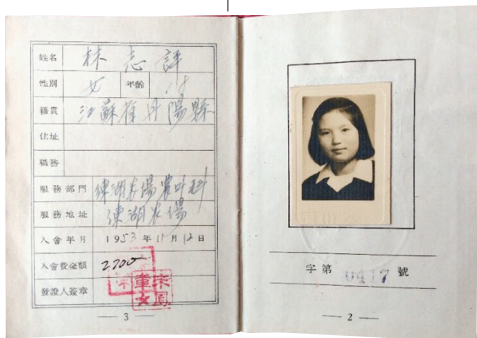 姓名 林志評
性別 女 年齡 18
籍貫 江蘇省丹陽縣
住址
職務
服務部門 練湖农場農业科
服務地址 練湖农場
入會年月 1953年11月12日
入會費金額 2700
發證人簽章
— 3 —
字第 0417 號
— 2 —